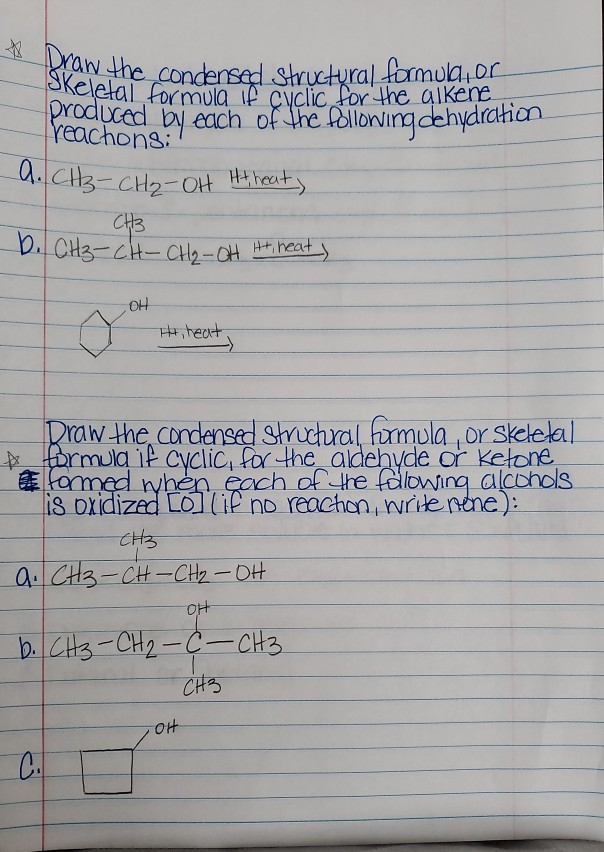 Draw the condensed structural formula, or
Skeletal formula if cyclic for the alkene
produced by each of the following dehydration
reactions:
a. CH3-CH2-OH H+, heat
CH3
b. CH3-CH-CH2-OH H+, heat
OH
H+, heat
Draw the condensed structural formula, or skeletal
formula if cyclic, for the aldehyde or ketone
formed when each of the following alcohols
is oxidized [O] (if no reaction, write none):
CH3
a. CH3-CH-CH2-OH
OH
b. CH3-CH2-C-CH3
CH3
OH
C.